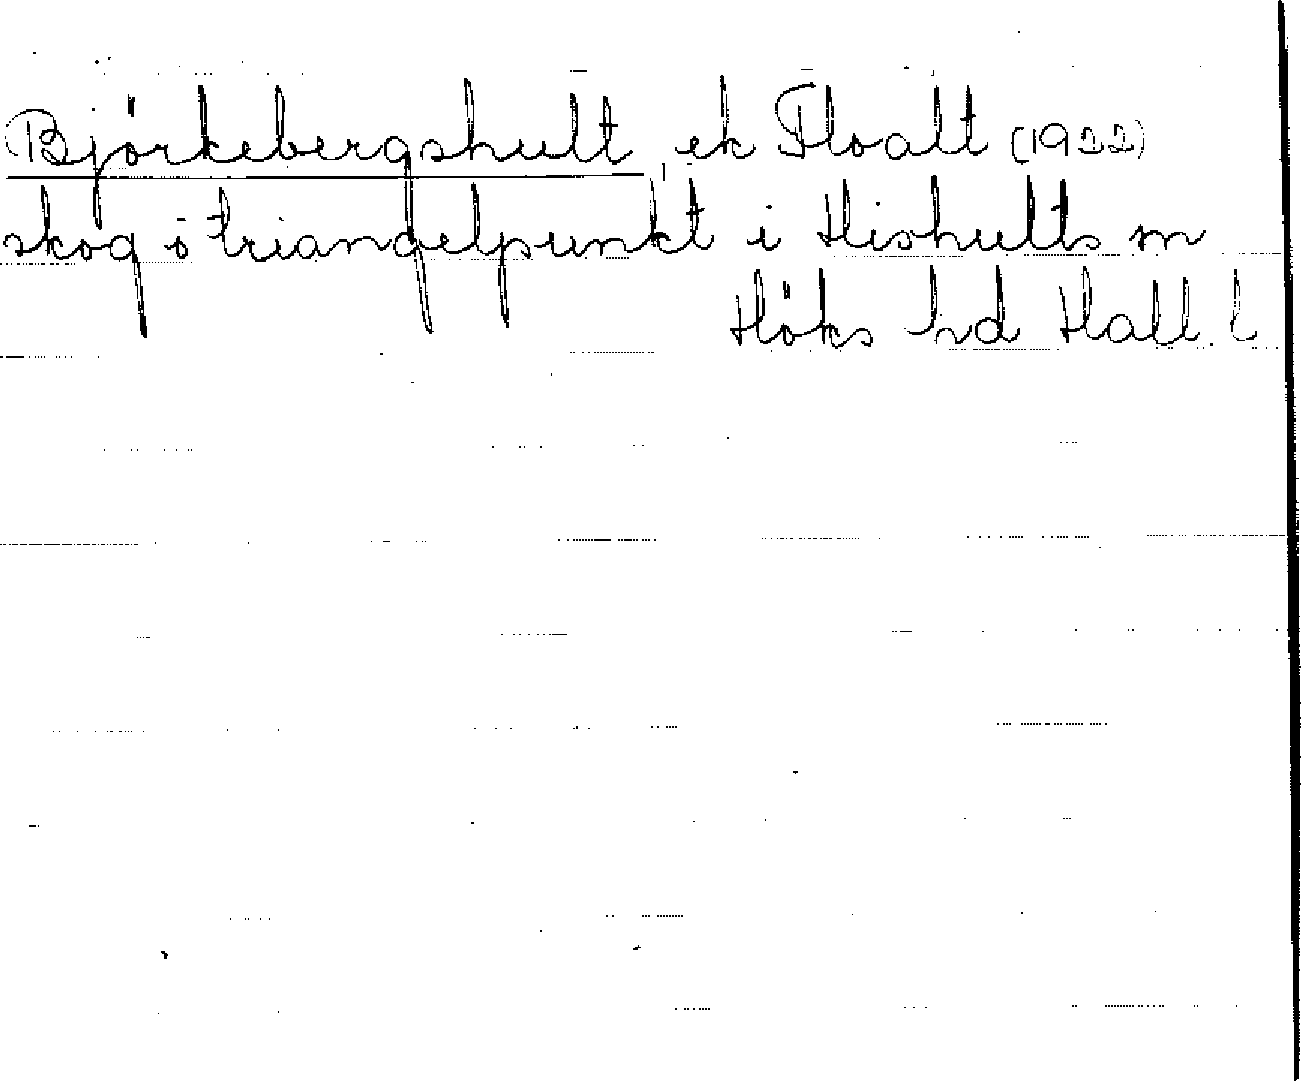 Björkebergshult, ek Floalt (1922)
skog o triangelpunkt i Hishults sn
Höks hd Hall. l